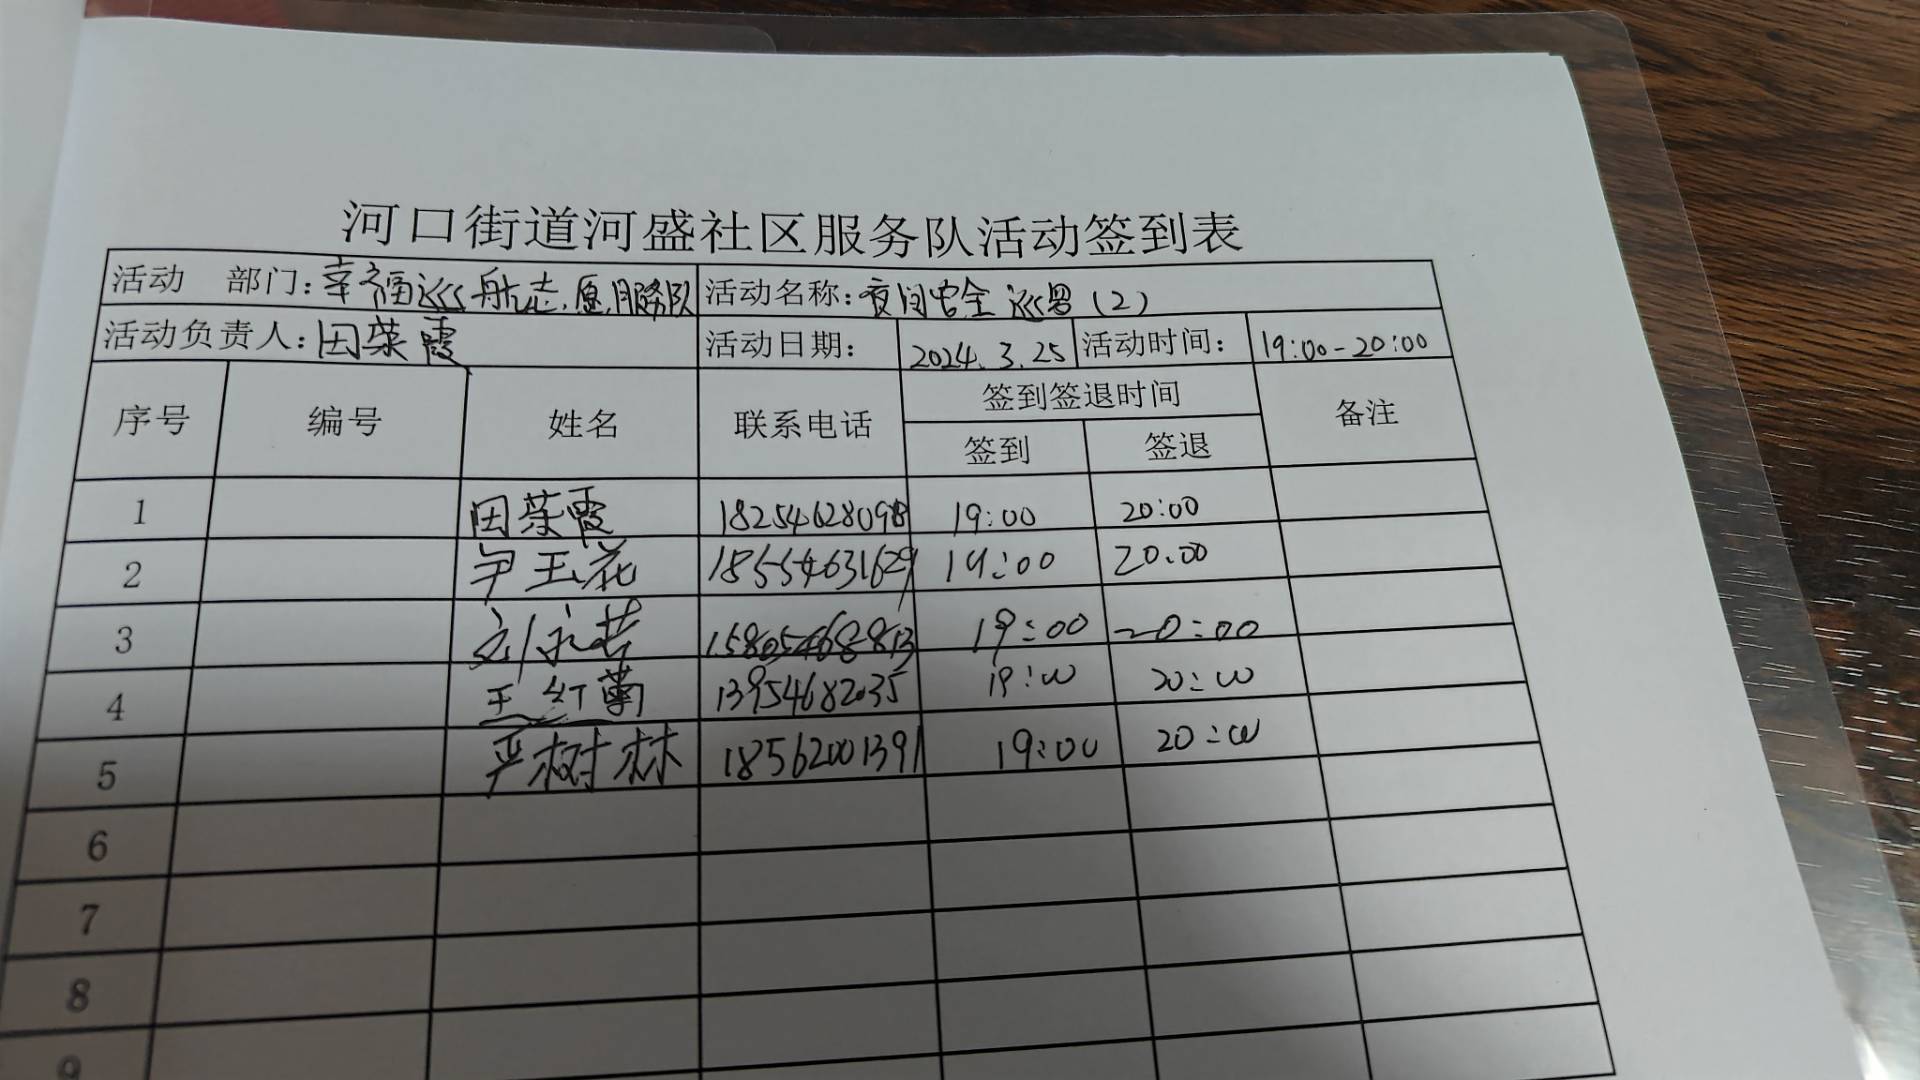 河口街道河盛社区服务队活动签到表
活动 部门:幸福巡航志愿服务队 活动名称:夜间安全巡逻(2)
活动负责人:田荣霞 活动日期: 2024.3.25 活动时间: 19:00-20:00
序号 编号 姓名 联系电话 签到签退时间 备注
签到 签退
1 田荣霞 18254628098 19:00 20:00
2 尹玉花 18554631629 19:00 20:00
3 15805468813 19:00 20:00
4 王红菊 13954682035 19:00 20:00
5 严树林 18562001391 19:00 20:00
6
7
8
9